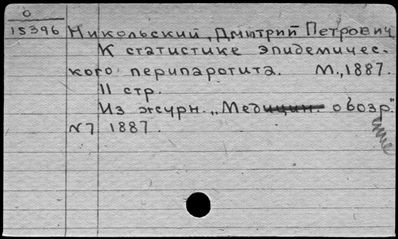 0
15396
Никольский, Дмитрий Петрович
К статистике эпидемичес-
кого перипаротита. М., 1887.
11 стр.
Из журн. „Медицин. обозр."
N7 1887.